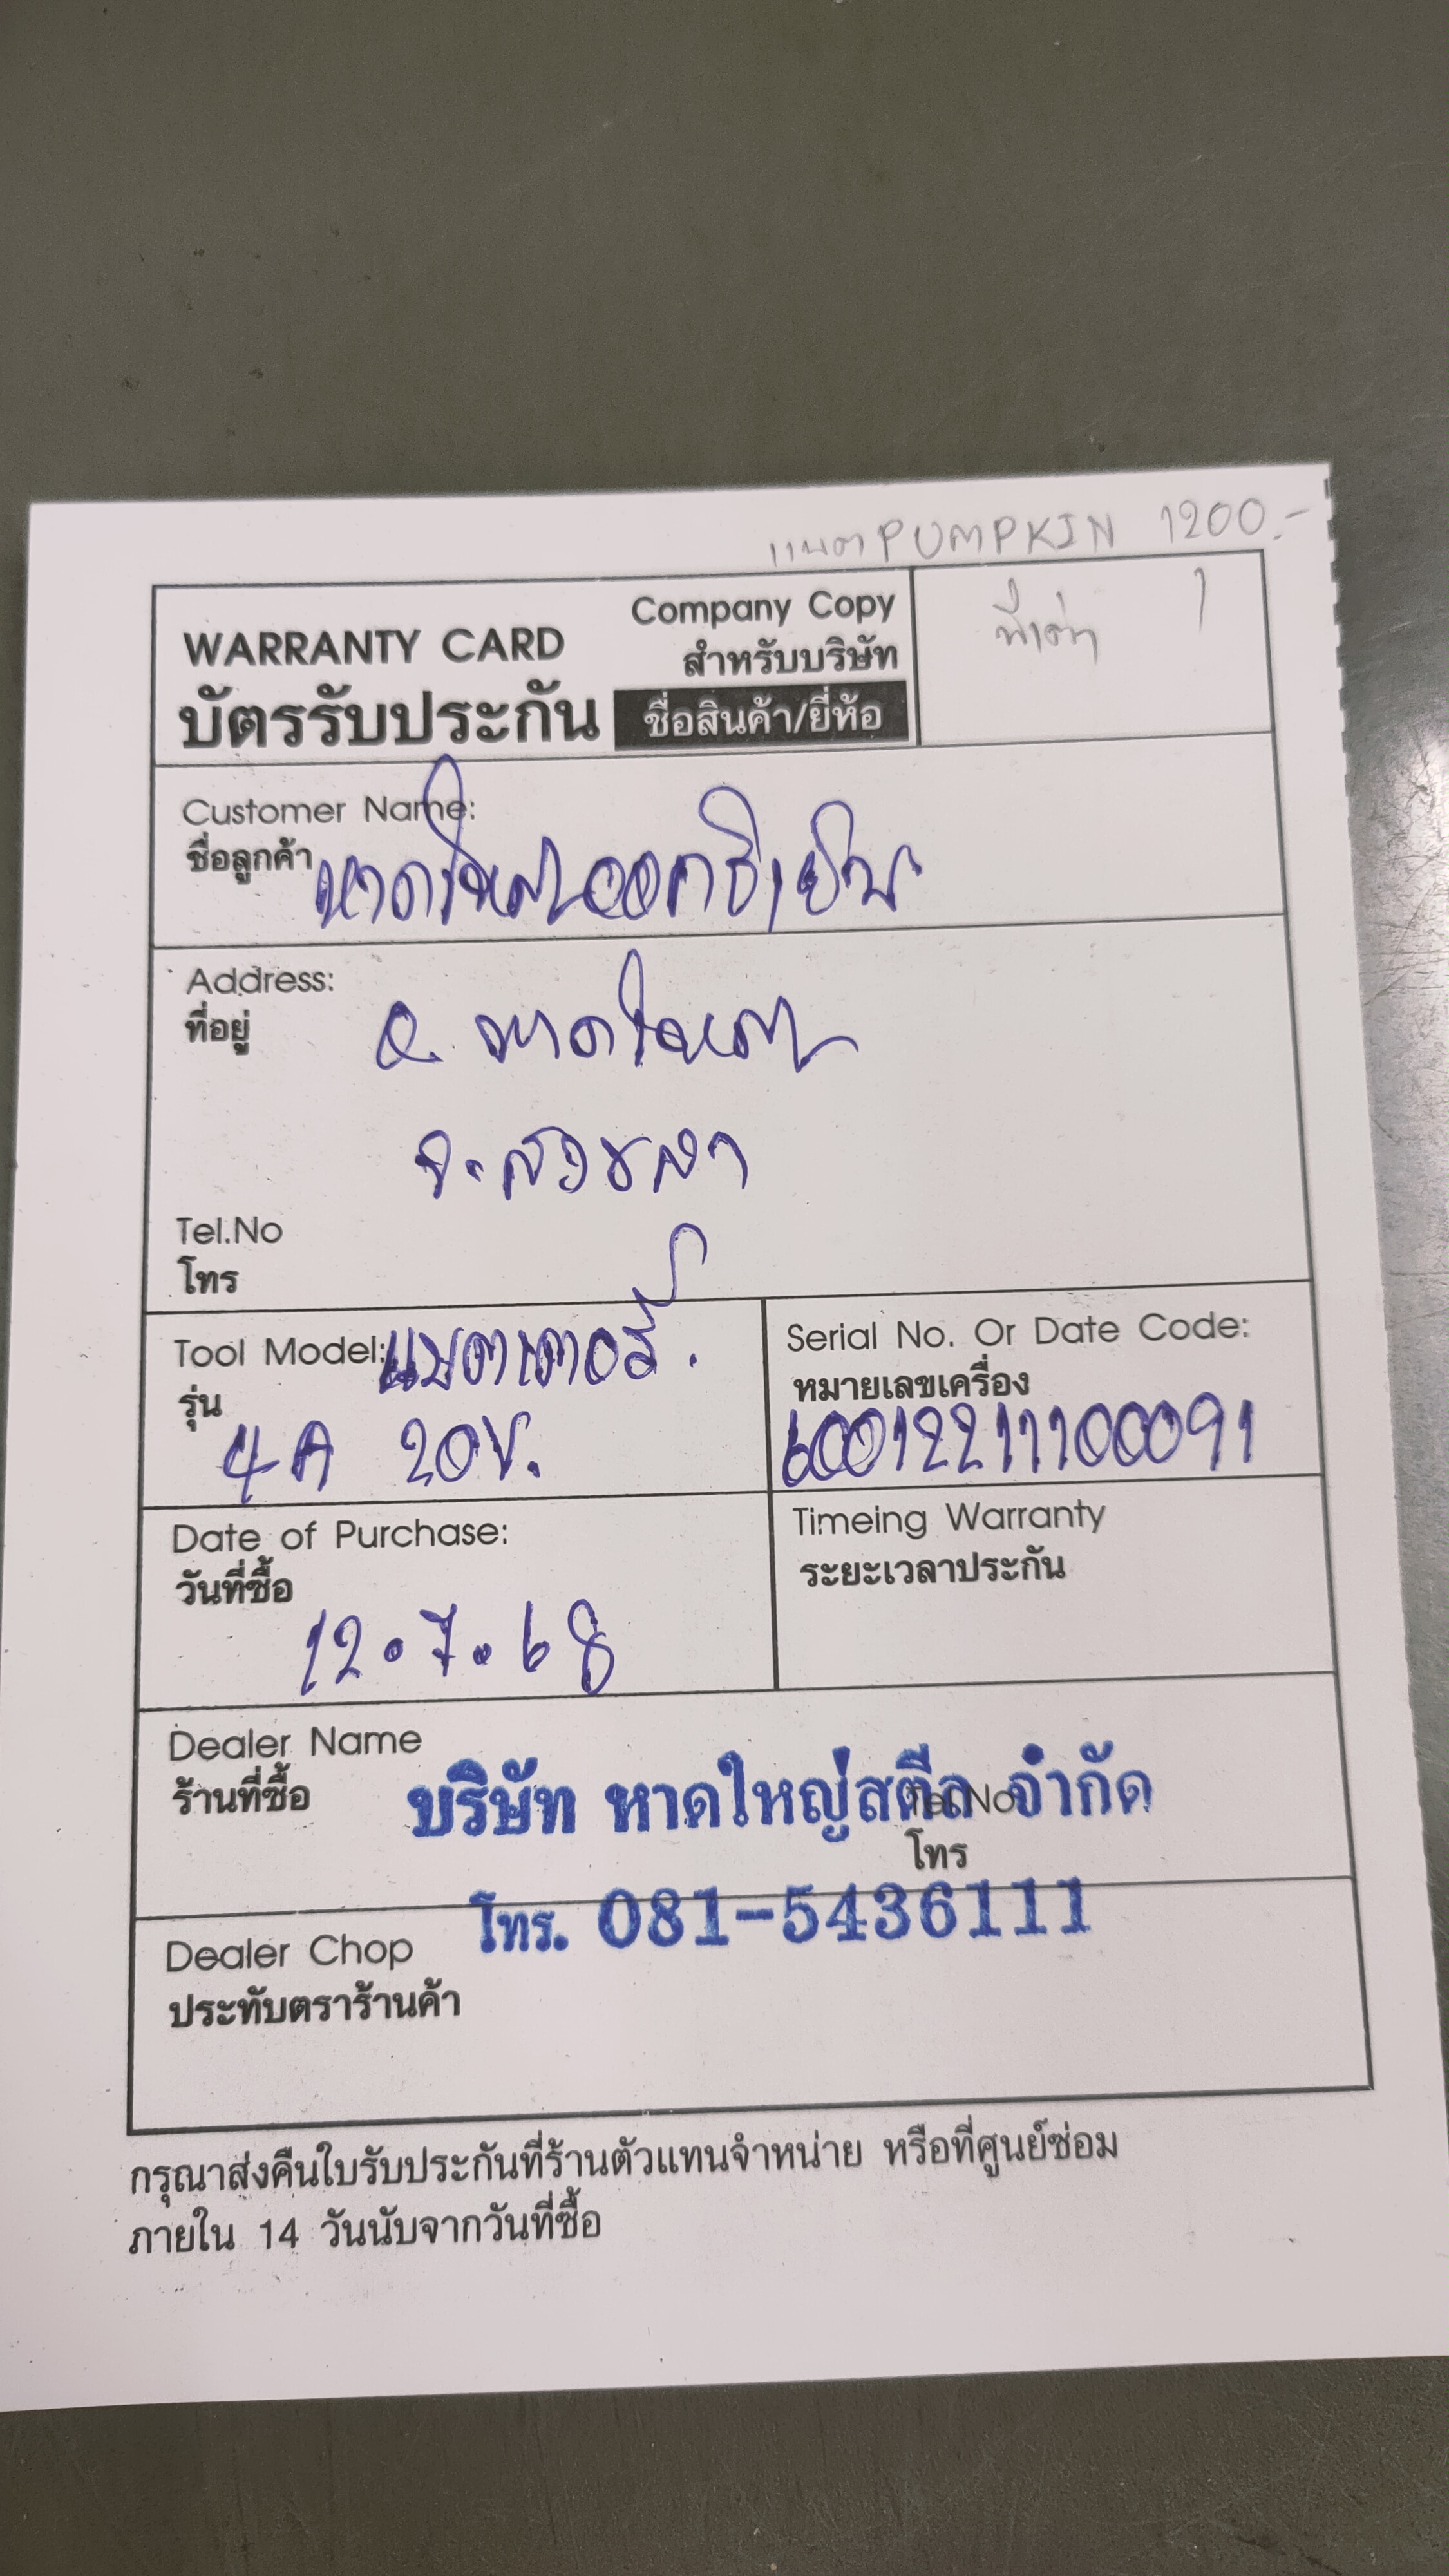 แบต PUMPKIN 1200.-
WARRANTY CARD
บัตรรับประกัน
Company Copy
สำหรับบริษัท
ชื่อสินค้า/ยี่ห้อ
Customer Name:
ชื่อลูกค้า หาดใหญ่ออกซิเยน
Address:
ที่อยู่ อ. หาดใหญ่
จ. สงขลา
Tel.No
โทร
Tool Model: แบตเตอรี่.
รุ่น 4A 20V.
Serial No. Or Date Code:
หมายเลขเครื่อง
60012211100091
Date of Purchase:
วันที่ซื้อ
12.7.68
Timeing Warranty
ระยะเวลาประกัน
Dealer Name
ร้านที่ซื้อ บริษัท หาดใหญ่สตีล จำกัด
Tel.No
โทร
โทร. 081-5436111
Dealer Chop
ประทับตราร้านค้า
กรุณาส่งคืนใบรับประกันที่ร้านตัวแทนจำหน่าย หรือที่ศูนย์ซ่อม
ภายใน 14 วันนับจากวันที่ซื้อ